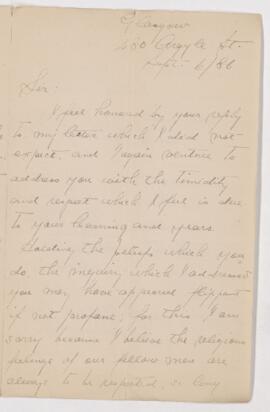 Glasgow
430 Argyle St.
Sept. 6/86
Sir:
I feel honored by your reply
to my letter which I did not
expect, and I again venture to
address you with the timidity
and respect which I feel is due
to your learning and years.
Holding the beliefs which you
do, the inquiry which I addressed
you may have appeared flippant
if not profane; for this I am
sorry because I believe the religious
feelings of our fellow men are
always to be respected, so long